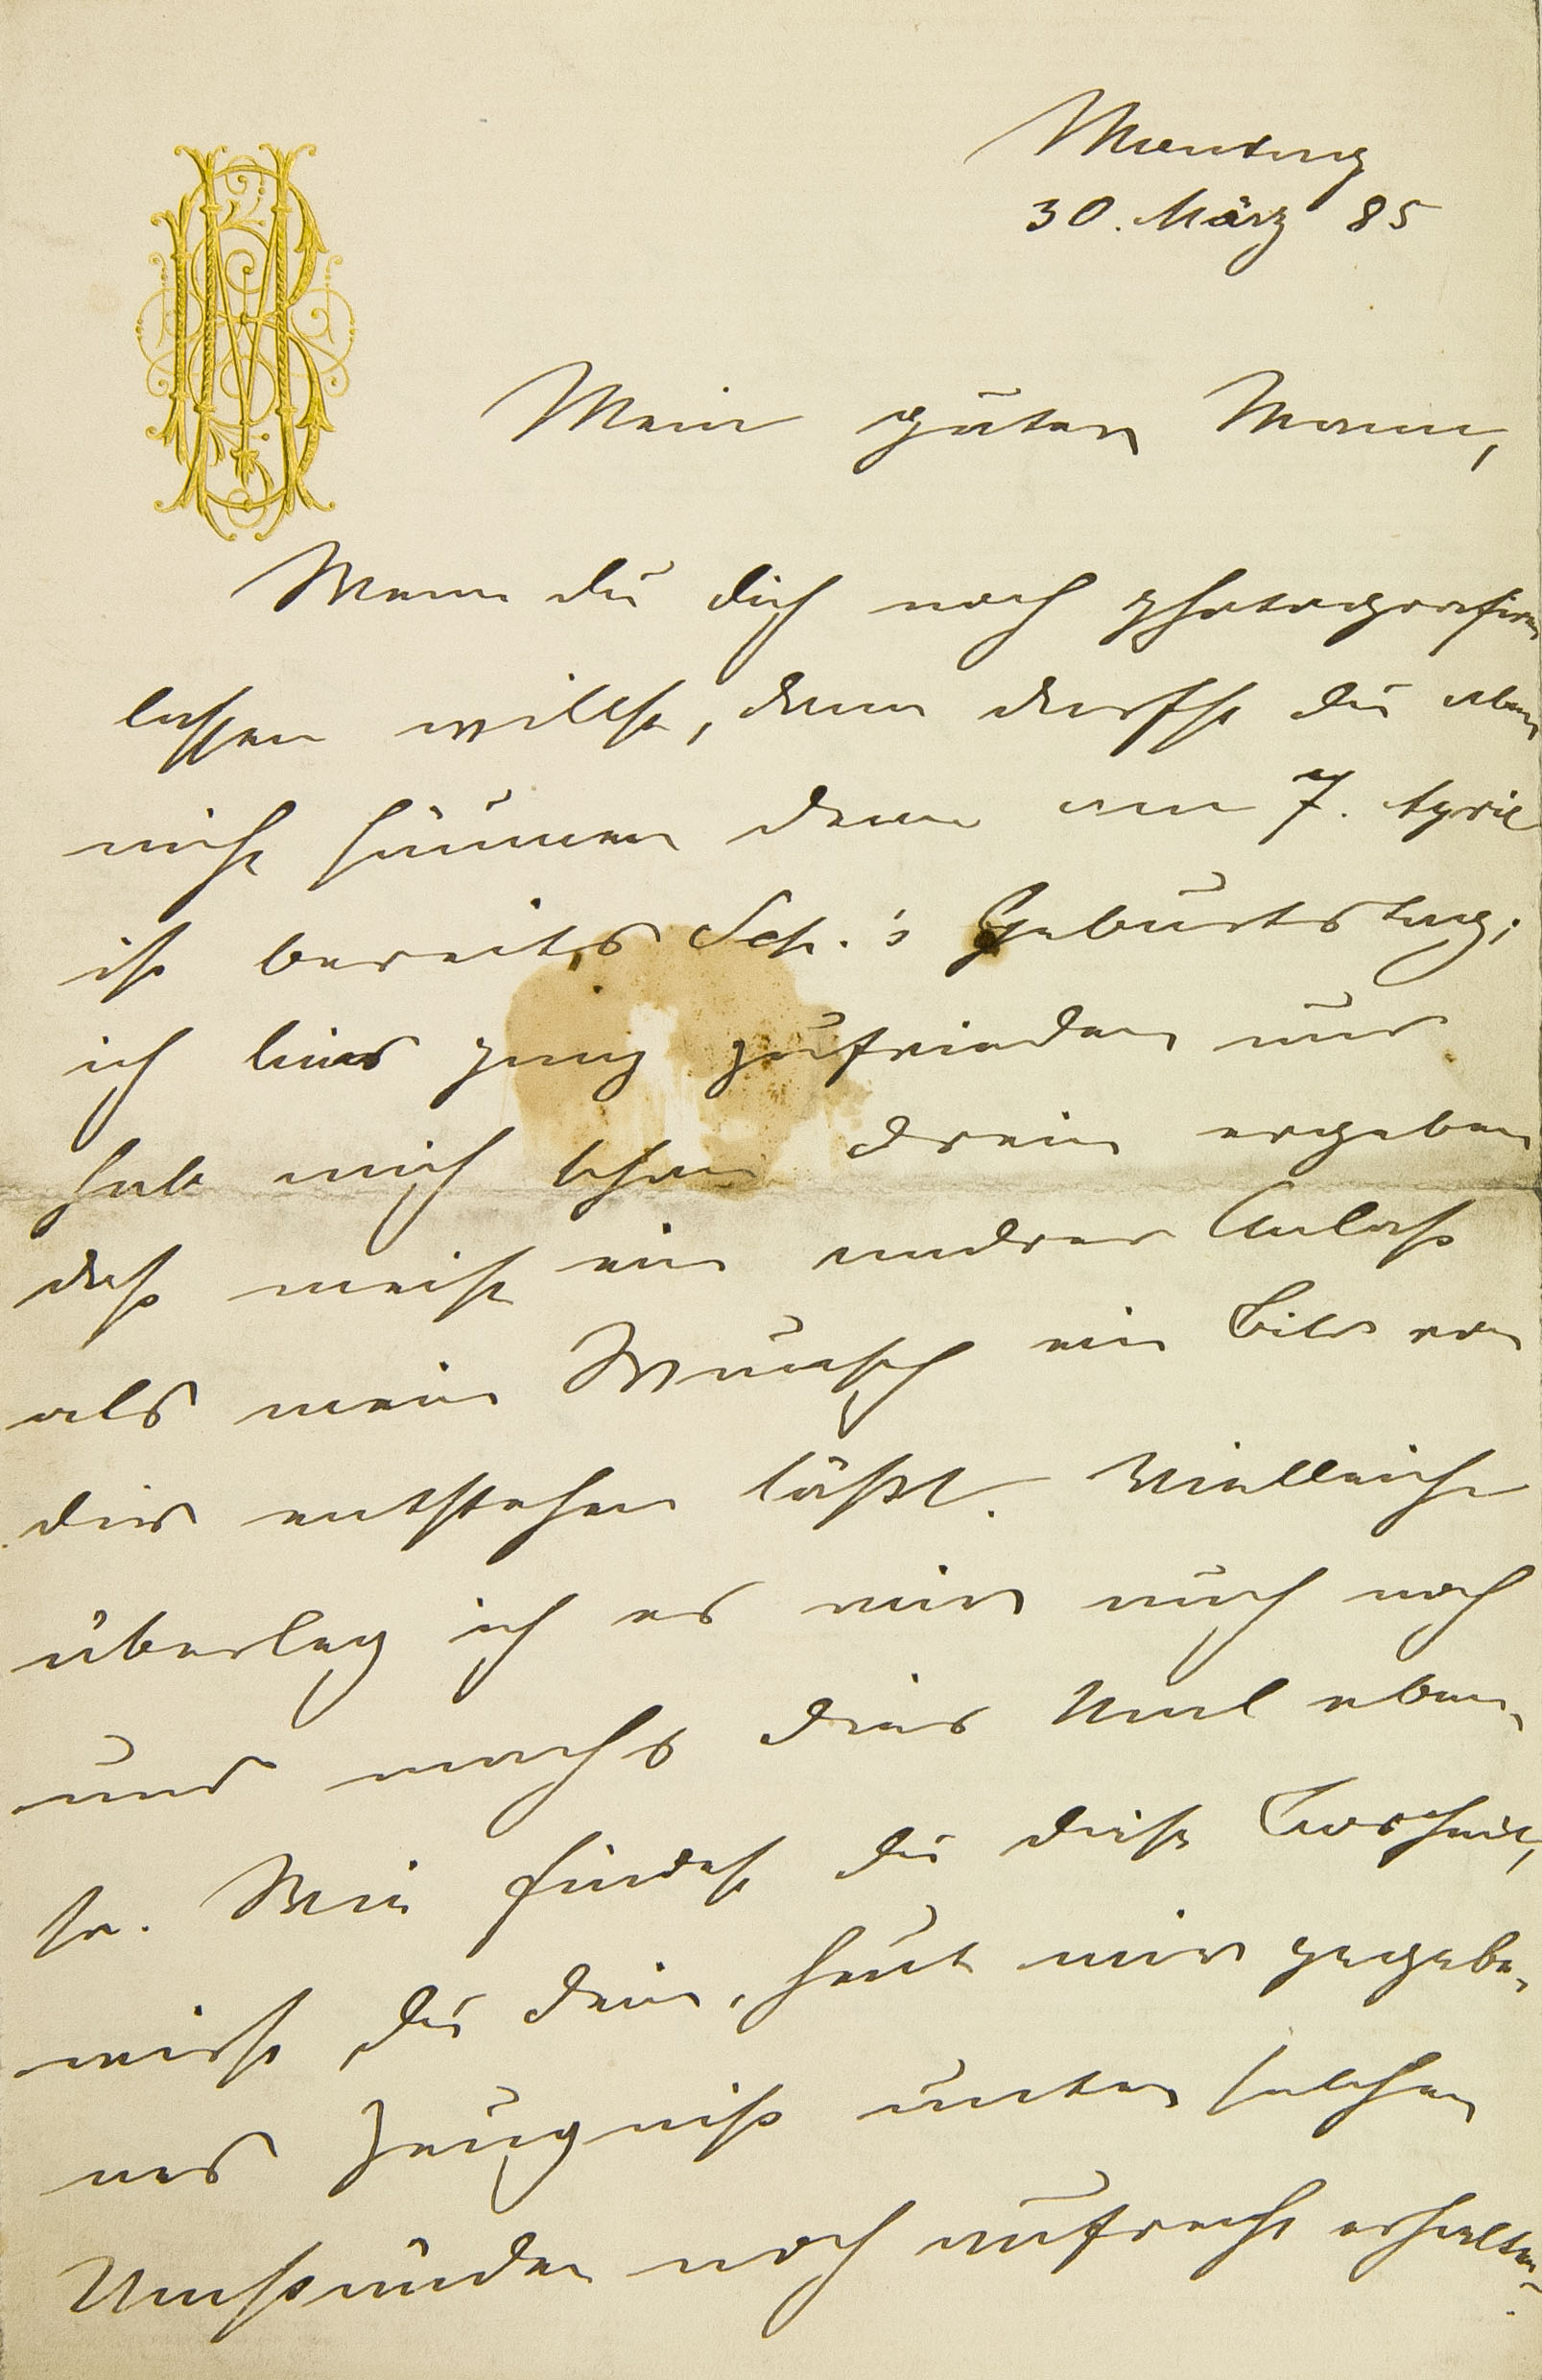 Montag
30. März 85
Mein guter Mann,
Wenn du dich noch photografiren
lassen willst, dann darfst du aber
nicht säumen denn am 7. April
ist bereits Sch.'s Geburtstag;
ich bin's ganz zufrieden und
hab mich schon drein ergeben
daß meist ein andrer Anlaß
als mein Wunsch ein Bild von
dir entstehen läßt. Vielleicht
überleg ich es mir auch noch
und mach's dies Mal eben
so. Wie findest du diese Bosheit,
wirst du dein, heut mir gegebe-
nes Zeugniß unter solchen
Umständen noch aufrecht erhalten